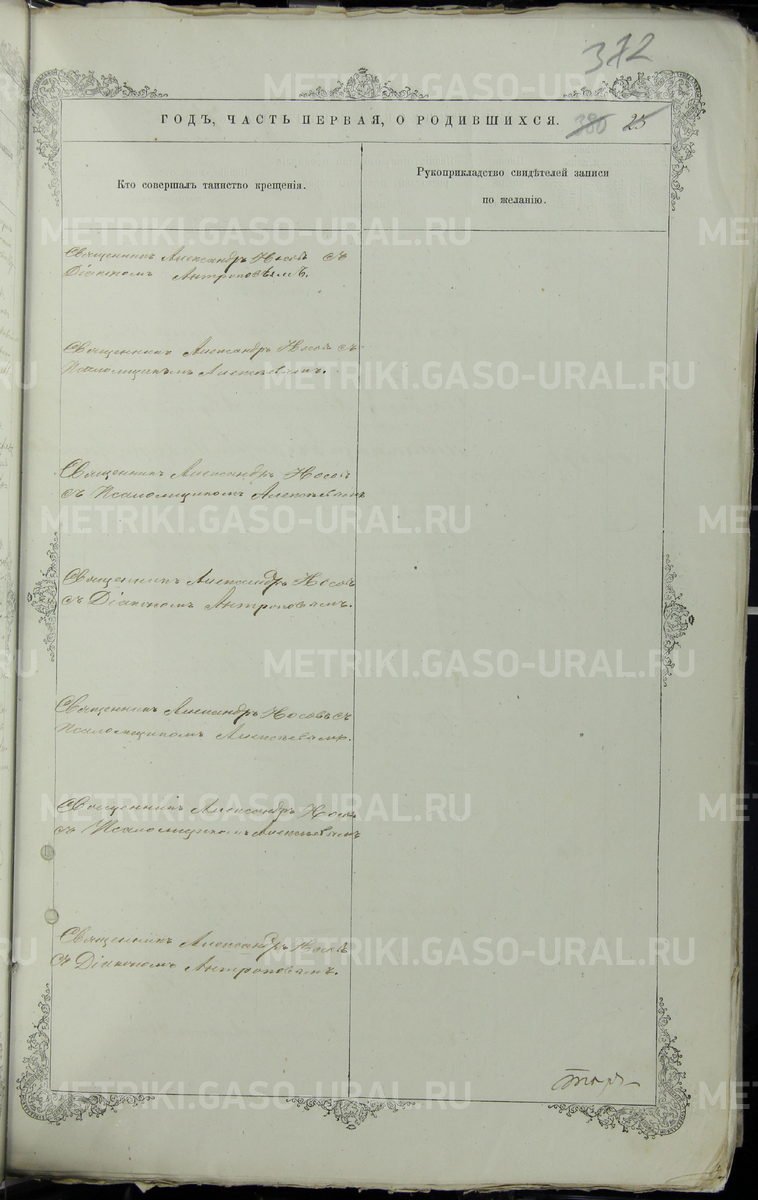 372
ГОДЪ, ЧАСТЬ ПЕРВАЯ, О РОДИВШИХСЯ. 380 25
Кто совершалъ таинство крещенія.
Рукоприкладство свидѣтелей записи
по желанію.
Священникъ Александръ Носовъ съ
Діакономъ Антроповымъ.
Священникъ Александръ Носовъ съ
Псаломщикомъ Алексѣевымъ.
Священникъ Александръ Носовъ
съ Псаломщикомъ Алексѣевымъ
Священникъ Александръ Носовъ
съ Діакономъ Антроповымъ.
Священникъ Александръ Носовъ съ
Псаломщикомъ Алексѣевымъ.
Священникъ Александръ Носовъ
съ Псаломщикомъ Алексѣевымъ
Священникъ Александръ Носовъ
съ Діакономъ Антроповымъ.
METRIKI.GASO-URAL.RU